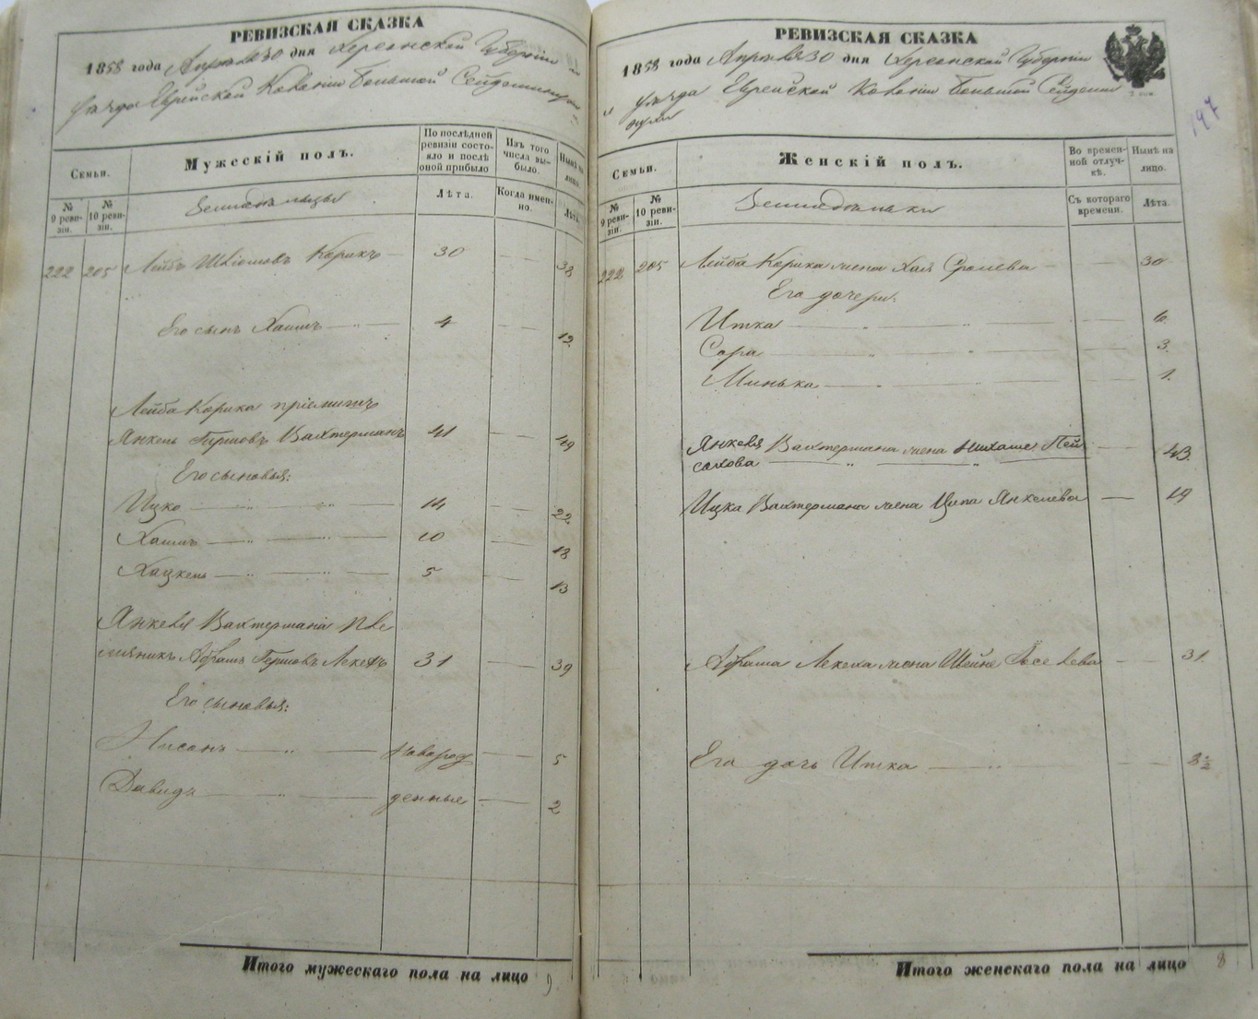 РЕВИЗСКАЯ СКАЗКА
1858 года Апрѣля 30 дня Херсонской Губерніи и
уѣзда Еврейской Колоніи Большой Сейдеминухи
Семьи.
Мужескій полъ.
По послѣдней ревизіи состояло и послѣ оной прибыло
Изъ того числа выбыло.
Нынѣ на лицо.
№ 9 ревизіи.
№ 10 ревизіи.
Земледѣльцы
Лѣта.
Когда именно.
Лѣта.
222 205 Лейба Корикъ 30 — 38
Его сынъ Хаимъ — 4 — 12
Лейба Корика пріемышъ
Янкель Гершовъ Вахтерманъ 41 — 49
Его сыновья:
Ицко — " — 14 — 22
Хаимъ — " — 10 — 18
Хацкель — " — 5 — 13
Янкеля Вахтермана пле
мянникъ Абрамъ Гершовъ Лекехъ 31 — 39
Его сыновья:
Нисонъ — " — новорож 5
Давидъ — " — денные 2
Итого мужескаго пола на лицо 9
РЕВИЗСКАЯ СКАЗКА
1858 года Апрѣля 30 дня Херсонской Губерніи
и уѣзда Еврейской Колоніи Большой Сейдеми
нухи
147
Семьи.
Женскій полъ.
Во временной отлучкѣ.
Нынѣ на лицо.
№ 9 ревизіи.
№ 10 ревизіи.
Съ котораго времени.
Лѣта.
222 205 Лейба Корика жена Хая Сролева — 30
Его дочери:
Итка — " — 6.
Сора — " — 3.
Минька — " — 1.
Янкеля Вахтермана жена Пей
сахова — " — " — 43.
Ицка Вахтермана жена Ципа Янкелева — 19
Абрама Лекеха жена Шейна — 31.
Его дочь Итка — " — 8½
Итого женскаго пола на лицо 8